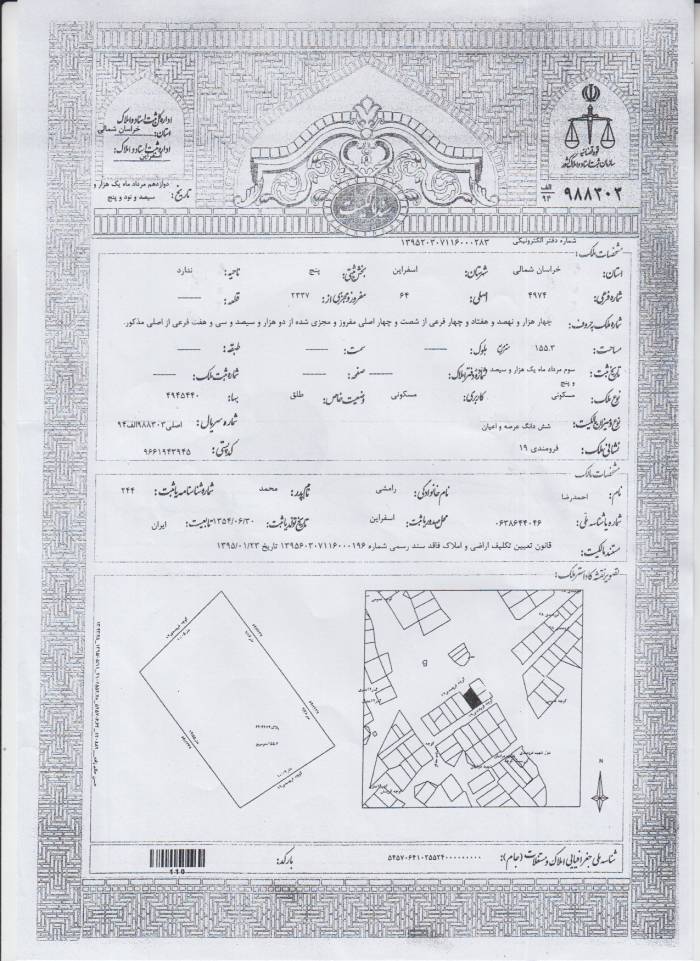 قوه قضائیه
سازمان ثبت اسناد و املاک کشور
الف
۹۴
۹۸۸۳۰۳
اداره کل ثبت اسناد و املاک
استان: خراسان شمالی
اداره ثبت اسناد و املاک:
اسفراین
تاریخ: دوازدهم مرداد ماه یک هزار و سیصد و نود و پنج
سند مالکیت
شماره دفتر الکترونیکی ۱۳۹۵۲۰۳۰۷۱۱۶۰۰۰۲۸۳
مشخصات ملک:
استان: خراسان شمالی شهرستان: اسفراین بخش ثبتی: پنج ناحیه: ندارد
شماره فرعی: ۴۹۷۴ اصلی: ۶۴ مفروز و مجزی از: ۲۳۳۷ قطعه: ——
شماره ملک به حروف: چهار هزار و نهصد و هفتاد و چهار فرعی از شصت و چهار اصلی مفروز و مجزی شده از دو هزار و سیصد و سی و هفت فرعی از اصلی مذکور.
مساحت: ۱۵۵.۳ مترمربع بلوک: —— سمت: —— طبقه: ——
تاریخ ثبت: سوم مرداد ماه یک هزار و سیصد شماره دفتر املاک: —— صفحه: —— شماره ثبت ملک: ——
و پنج
نوع ملک: مسکونی کاربری: مسکونی وضعیت خاص: طلق بهاء: ۴۹۴۵۴۴۰
نوع و میزان مالکیت: شش دانگ عرصه و اعیان شماره سریال: اصلی۹۸۸۳۰۳الف۹۴
نشانی ملک: فرومندی ۱۹ کد پستی: ۹۶۶۱۹۴۳۹۴۵
مشخصات مالک:
نام: احمدرضا نام خانوادگی: رامشی نام پدر: محمد شماره شناسنامه یا ثبت: ۲۴۴
شماره یا شناسه ملی: ۰۶۳۸۶۴۴۰۴۶ محل صدور یا ثبت: اسفراین تاریخ تولد یا ثبت: ۱۳۵۴/۰۶/۳۰ تابعیت: ایران
مستند مالکیت: قانون تعیین تکلیف اراضی و املاک فاقد سند رسمی شماره ۱۳۹۵۶۰۳۰۷۱۱۶۰۰۰۱۹۶ تاریخ ۱۳۹۵/۰۱/۲۳
تصویر نقشه کاداستر ملک:
N
شناسه ملی جغرافیایی املاک و مستغلات (جام): ۵۴۵۷۰۶۴۱۰۲۵۵۲۴۰۰۰۰۰۰۰۰۰۰
بارکد:
110